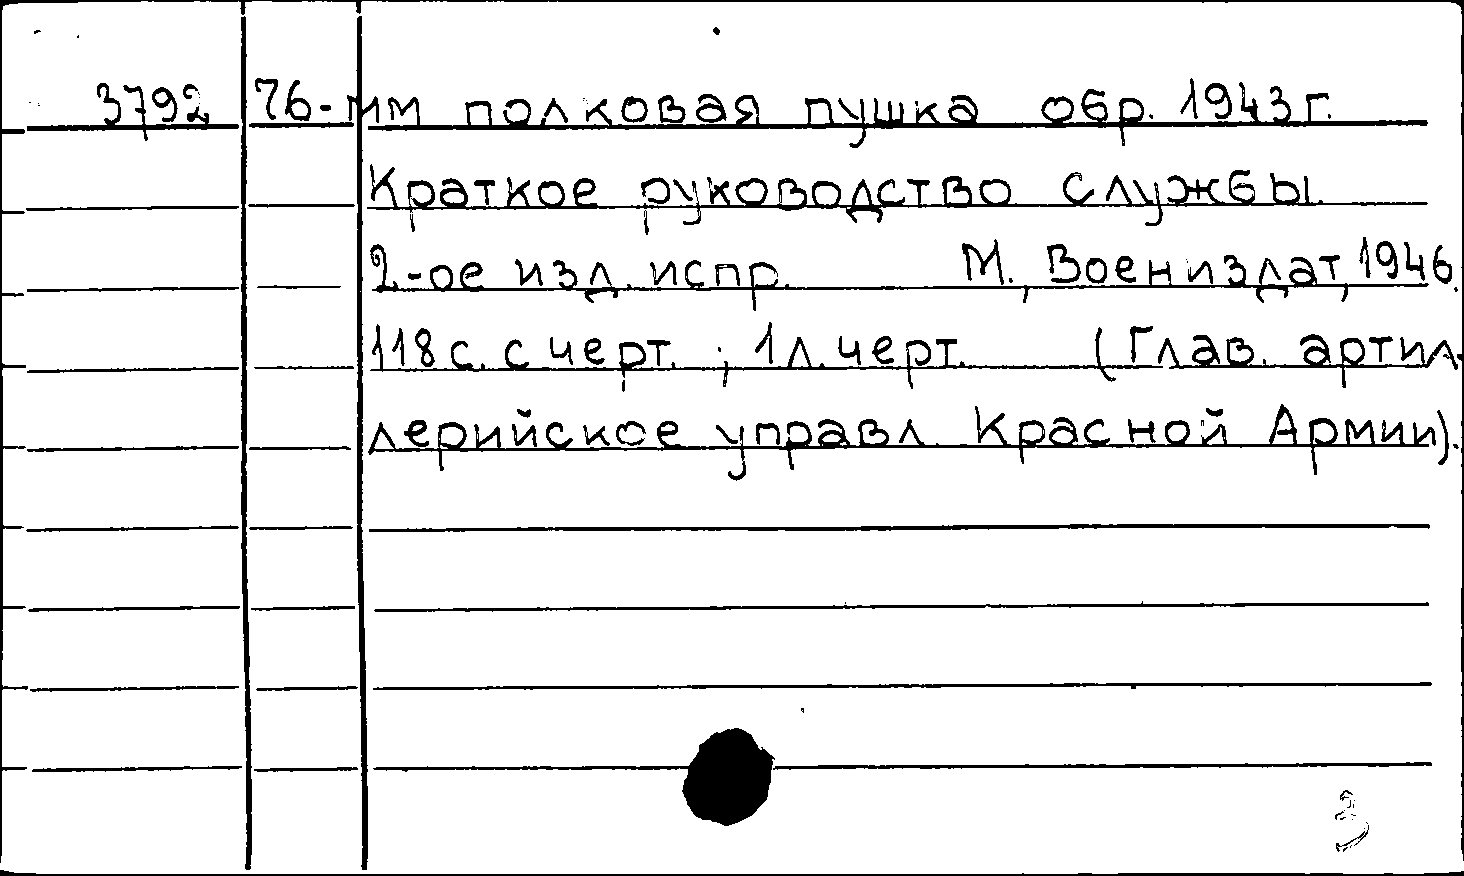 3792 76-мм полковая пушка обр. 1943 г.
Краткое руководство службы.
2-ое изд. испр. М., Воениздат, 1946.
118 с. с черт. ; 1 л. черт. (Глав. артил-
лерийское управл. Красной Армии).
3